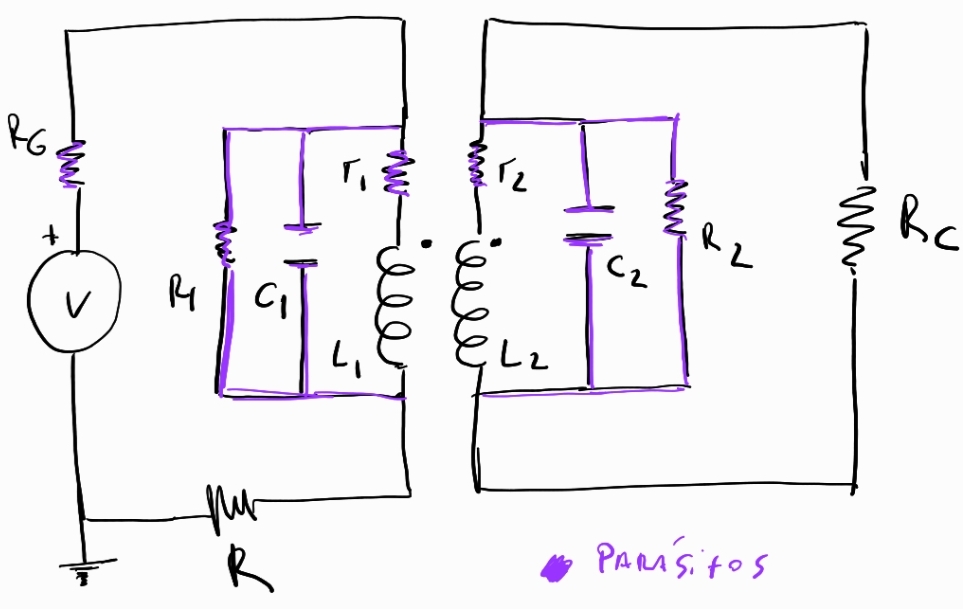 RG
+
V
R1
C1
r1
L1
r2
L2
C2
R2
RC
R
PARÁSITOS